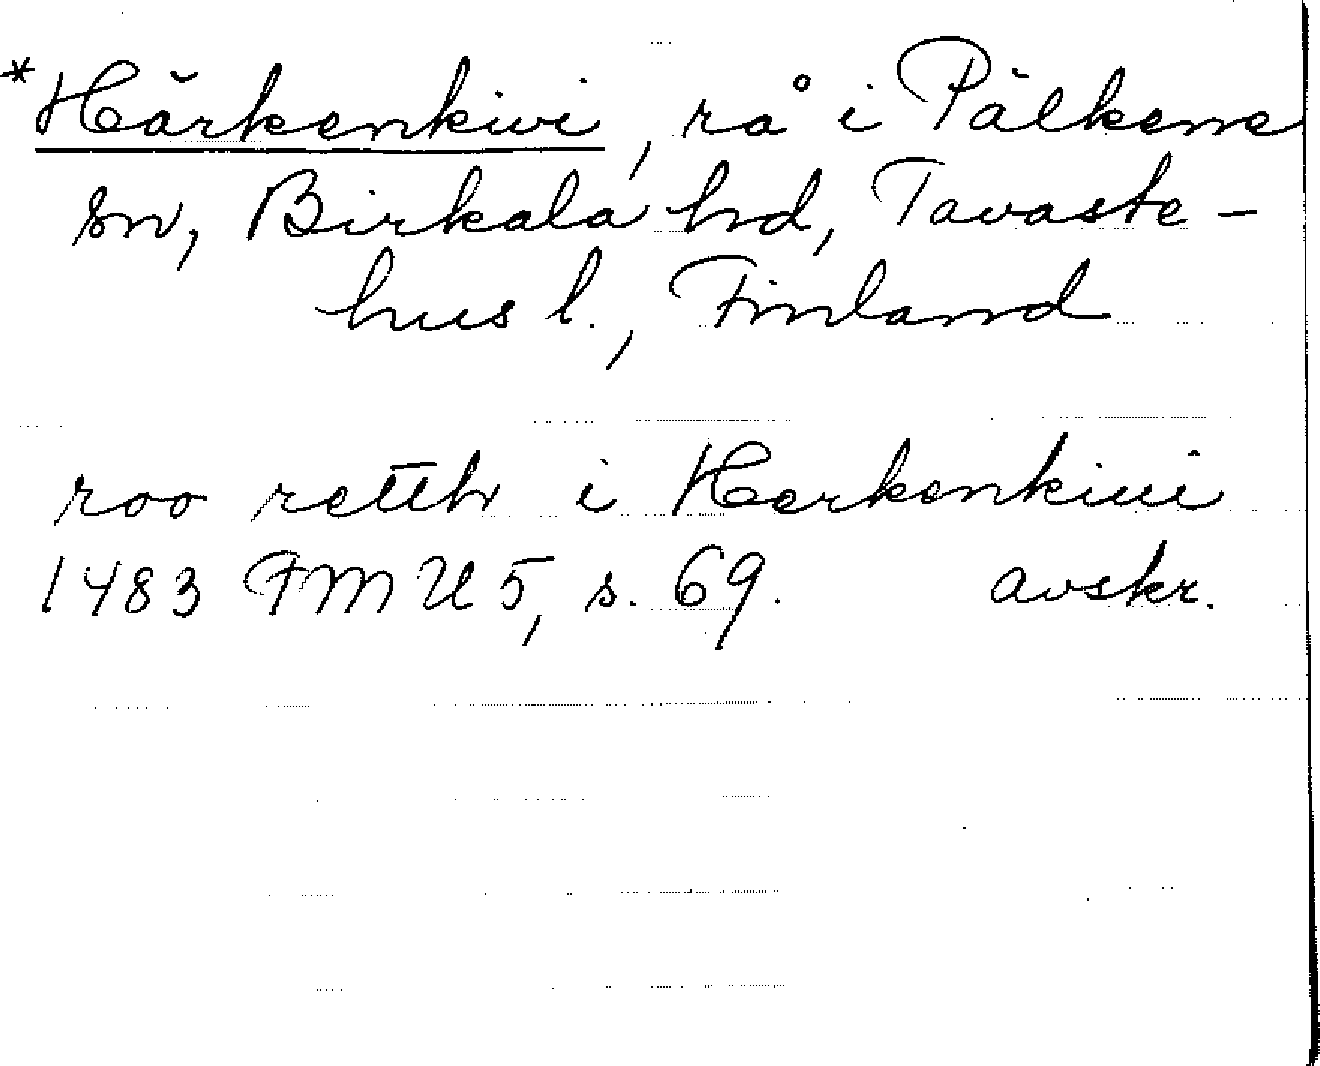 *Härkenkivi, rå i Pälkene
sn, Birkala hd, Tavaste-
hus l., Finland
roo retth i Herkenkiui
1483 FMU 5, s. 69. avskr.